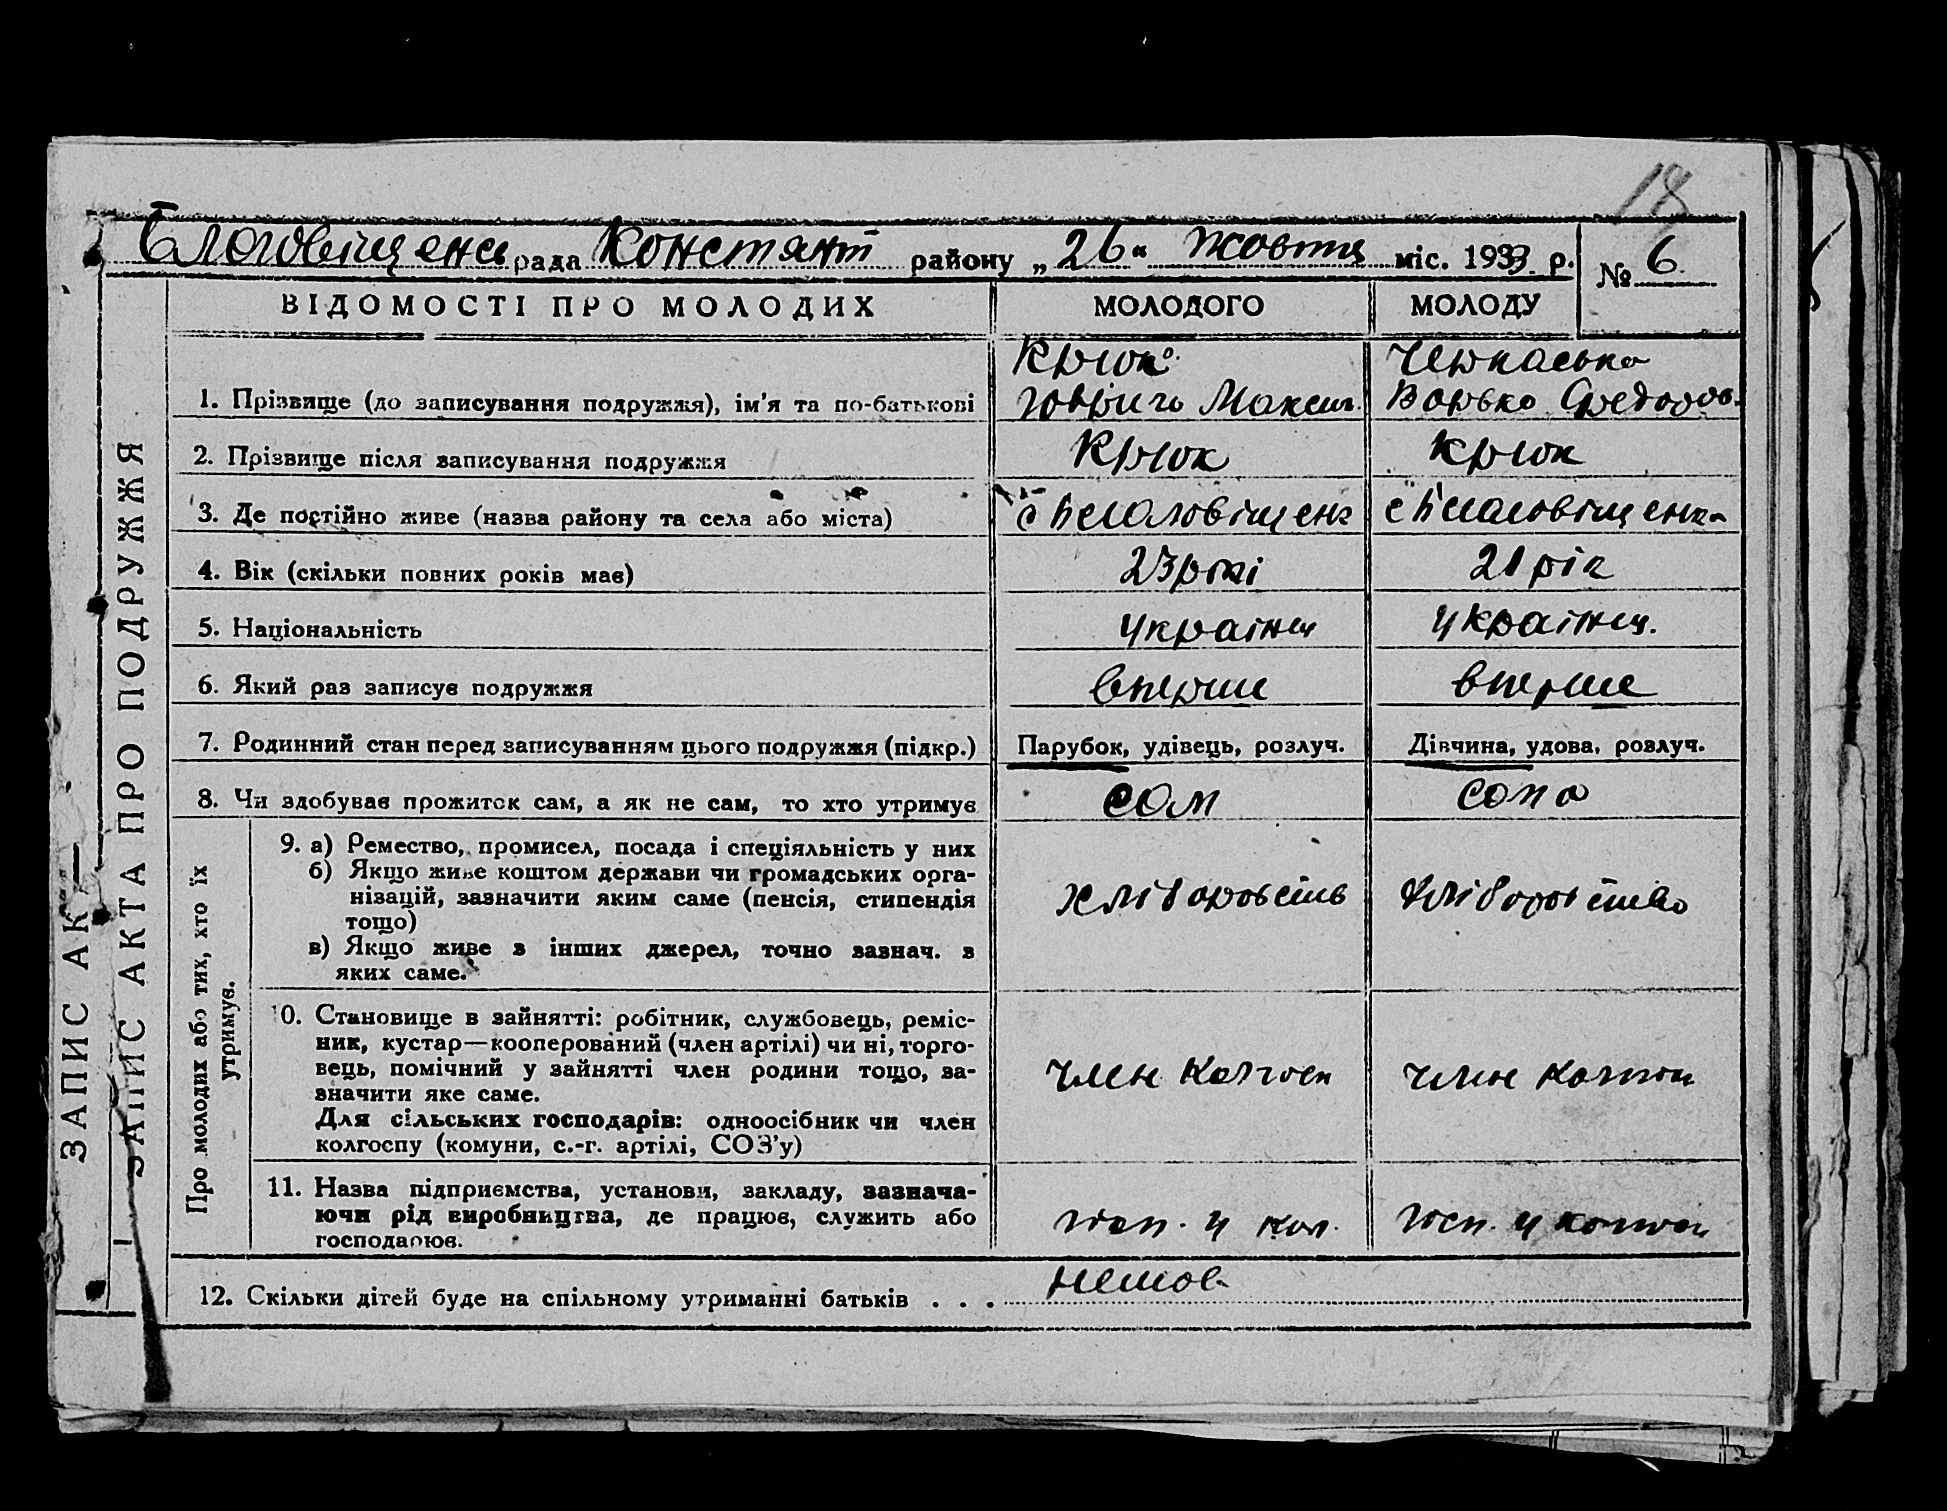 18
Благовіщенсь рада Констянт району „26“ жовтня міс. 1933 р. № 6
ВІДОМОСТІ ПРО МОЛОДИХ МОЛОДОГО МОЛОДУ
Крюк Черкаська
1. Прізвище (до записування подружжя), ім'я та по-батькові Максим. Варька Федоров.
2. Прізвище після записування подружжя Крюк Крюк
3. Де постійно живе (назва району та села або міста) с Благовіщенк с Благовіщенка
4. Вік (скільки повних років має) 23 рокі 21 рік
5. Національність українц українц.
6. Який раз записує подружжя вперше вперше
7. Родинний стан перед записуванням цього подружжя (підкр.) Парубок, удівець, розлуч. Дівчина, удова, розлуч.
8. Чи здобуває прожиток сам, а як не сам, то хто утримує сам сама
Про молодих або тих, хто їх
утримує.
9. а) Ремество, промисел, посада і спеціяльність у них
б) Якщо живе коштом держави чи громадських орга-
нізацій, зазначити яким саме (пенсія, стипендія
тощо)
в) Якщо живе з інших джерел, точно зазнач. з
яких саме.
хліборобств хліборобство
10. Становище в зайнятті: робітник, службовець, реміс-
ник, кустар—кооперований (член артілі) чи ні, торго-
вець, помічний у зайнятті член родини тощо, за-
значити яке саме.
Для сільських господарів: одноосібник чи член
колгоспу (комуни, с.-г. артілі, СОЗ'у)
член колгосп член колгосп
11. Назва підприємства, установи, закладу, зазнача-
ючи рід виробництва, де працює, служить або
господарює.
госп. у кол. госп. у колгосп
12. Скільки дітей буде на спільному утриманні батьків . . . немає
ЗАПИС АК
ЗАПИС АКТА ПРО ПОДРУЖЖЯ